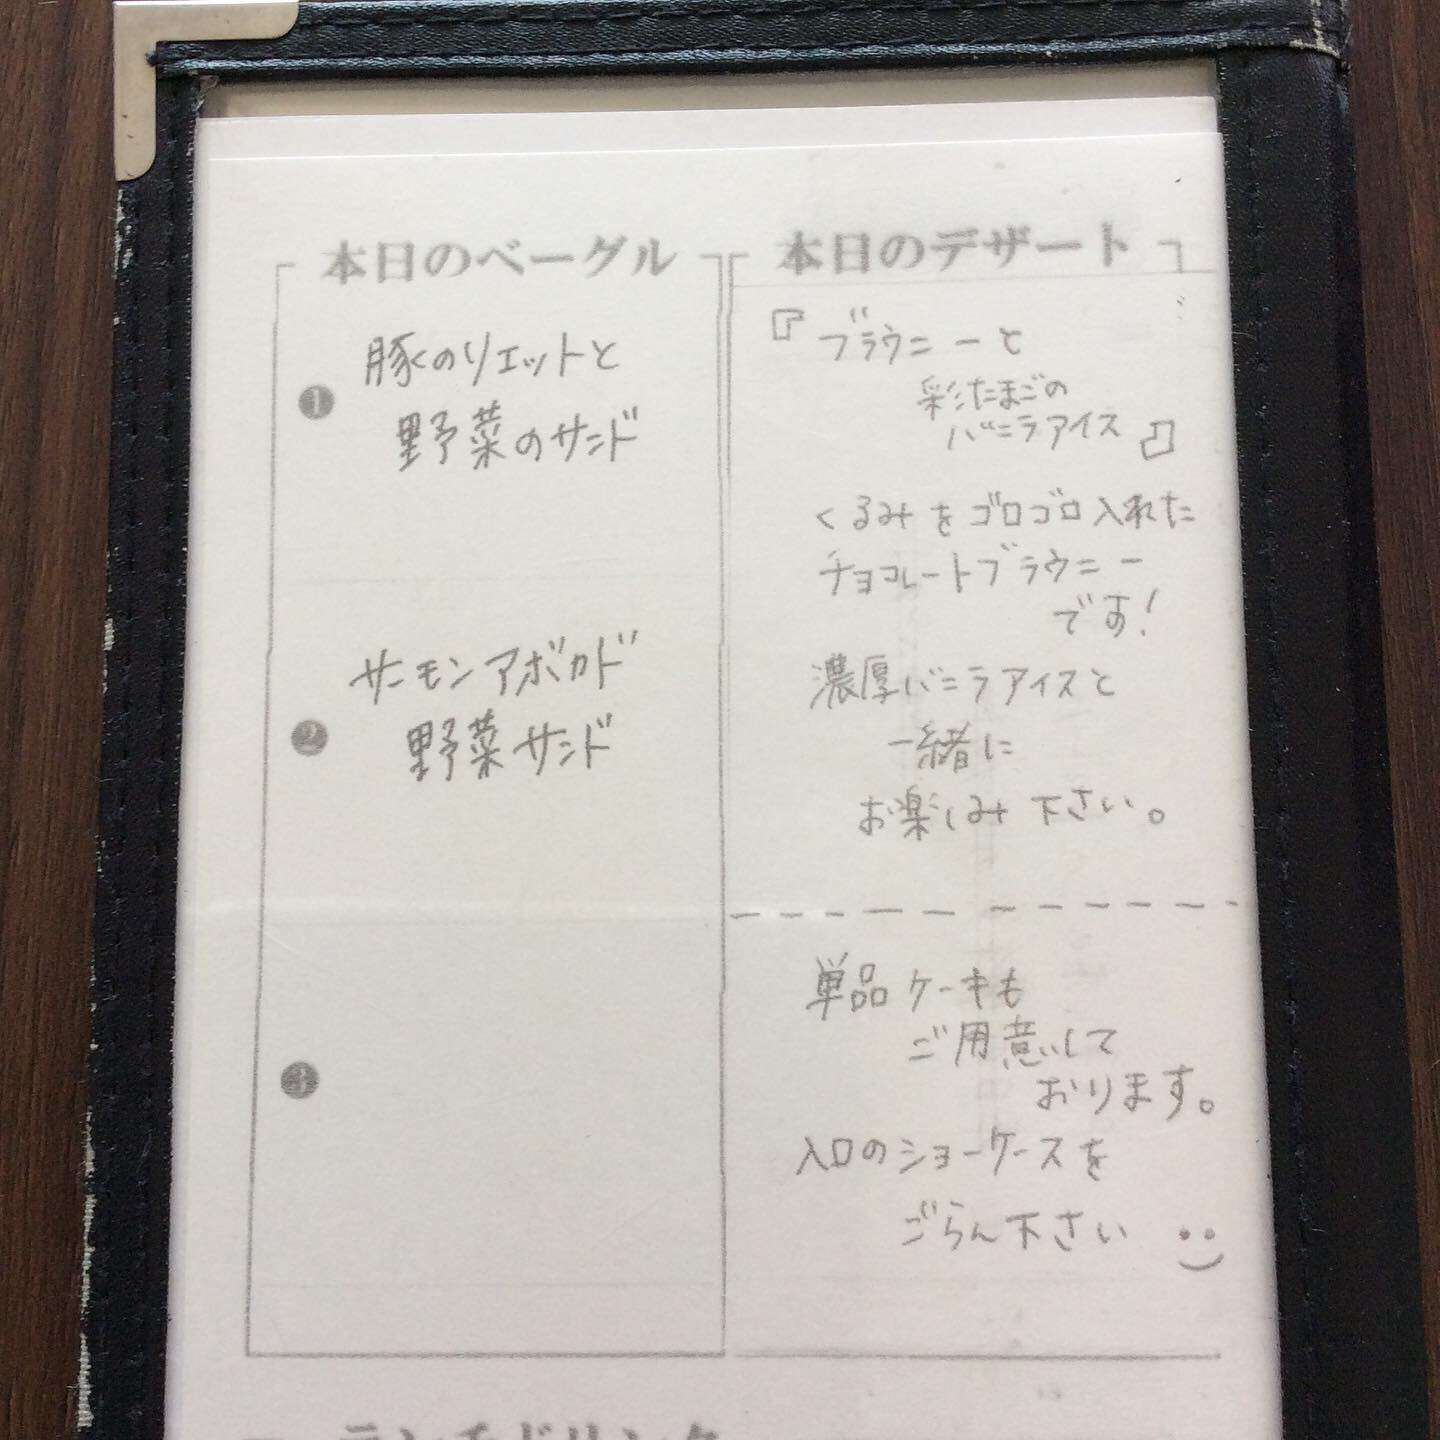 本日のベーグル
❶
豚のリエットと
野菜のサンド
❷
サーモンアボカド
野菜サンド
❸
本日のデザート
『ブラウニーと
彩たまごの
バニラアイス』
くるみをゴロゴロ入れた
チョコレートブラウニー
です!
濃厚バニラアイスと
一緒に
お楽しみ下さい。
単品ケーキも
ご用意して
おります。
入口のショーケースを
ごらん下さい
ランチドリンク